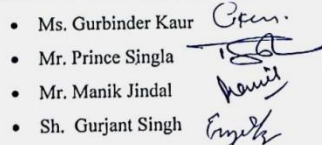 • Ms. Gurbinder Kaur
• Mr. Prince Singla
• Mr. Manik Jindal
• Sh. Gurjant Singh